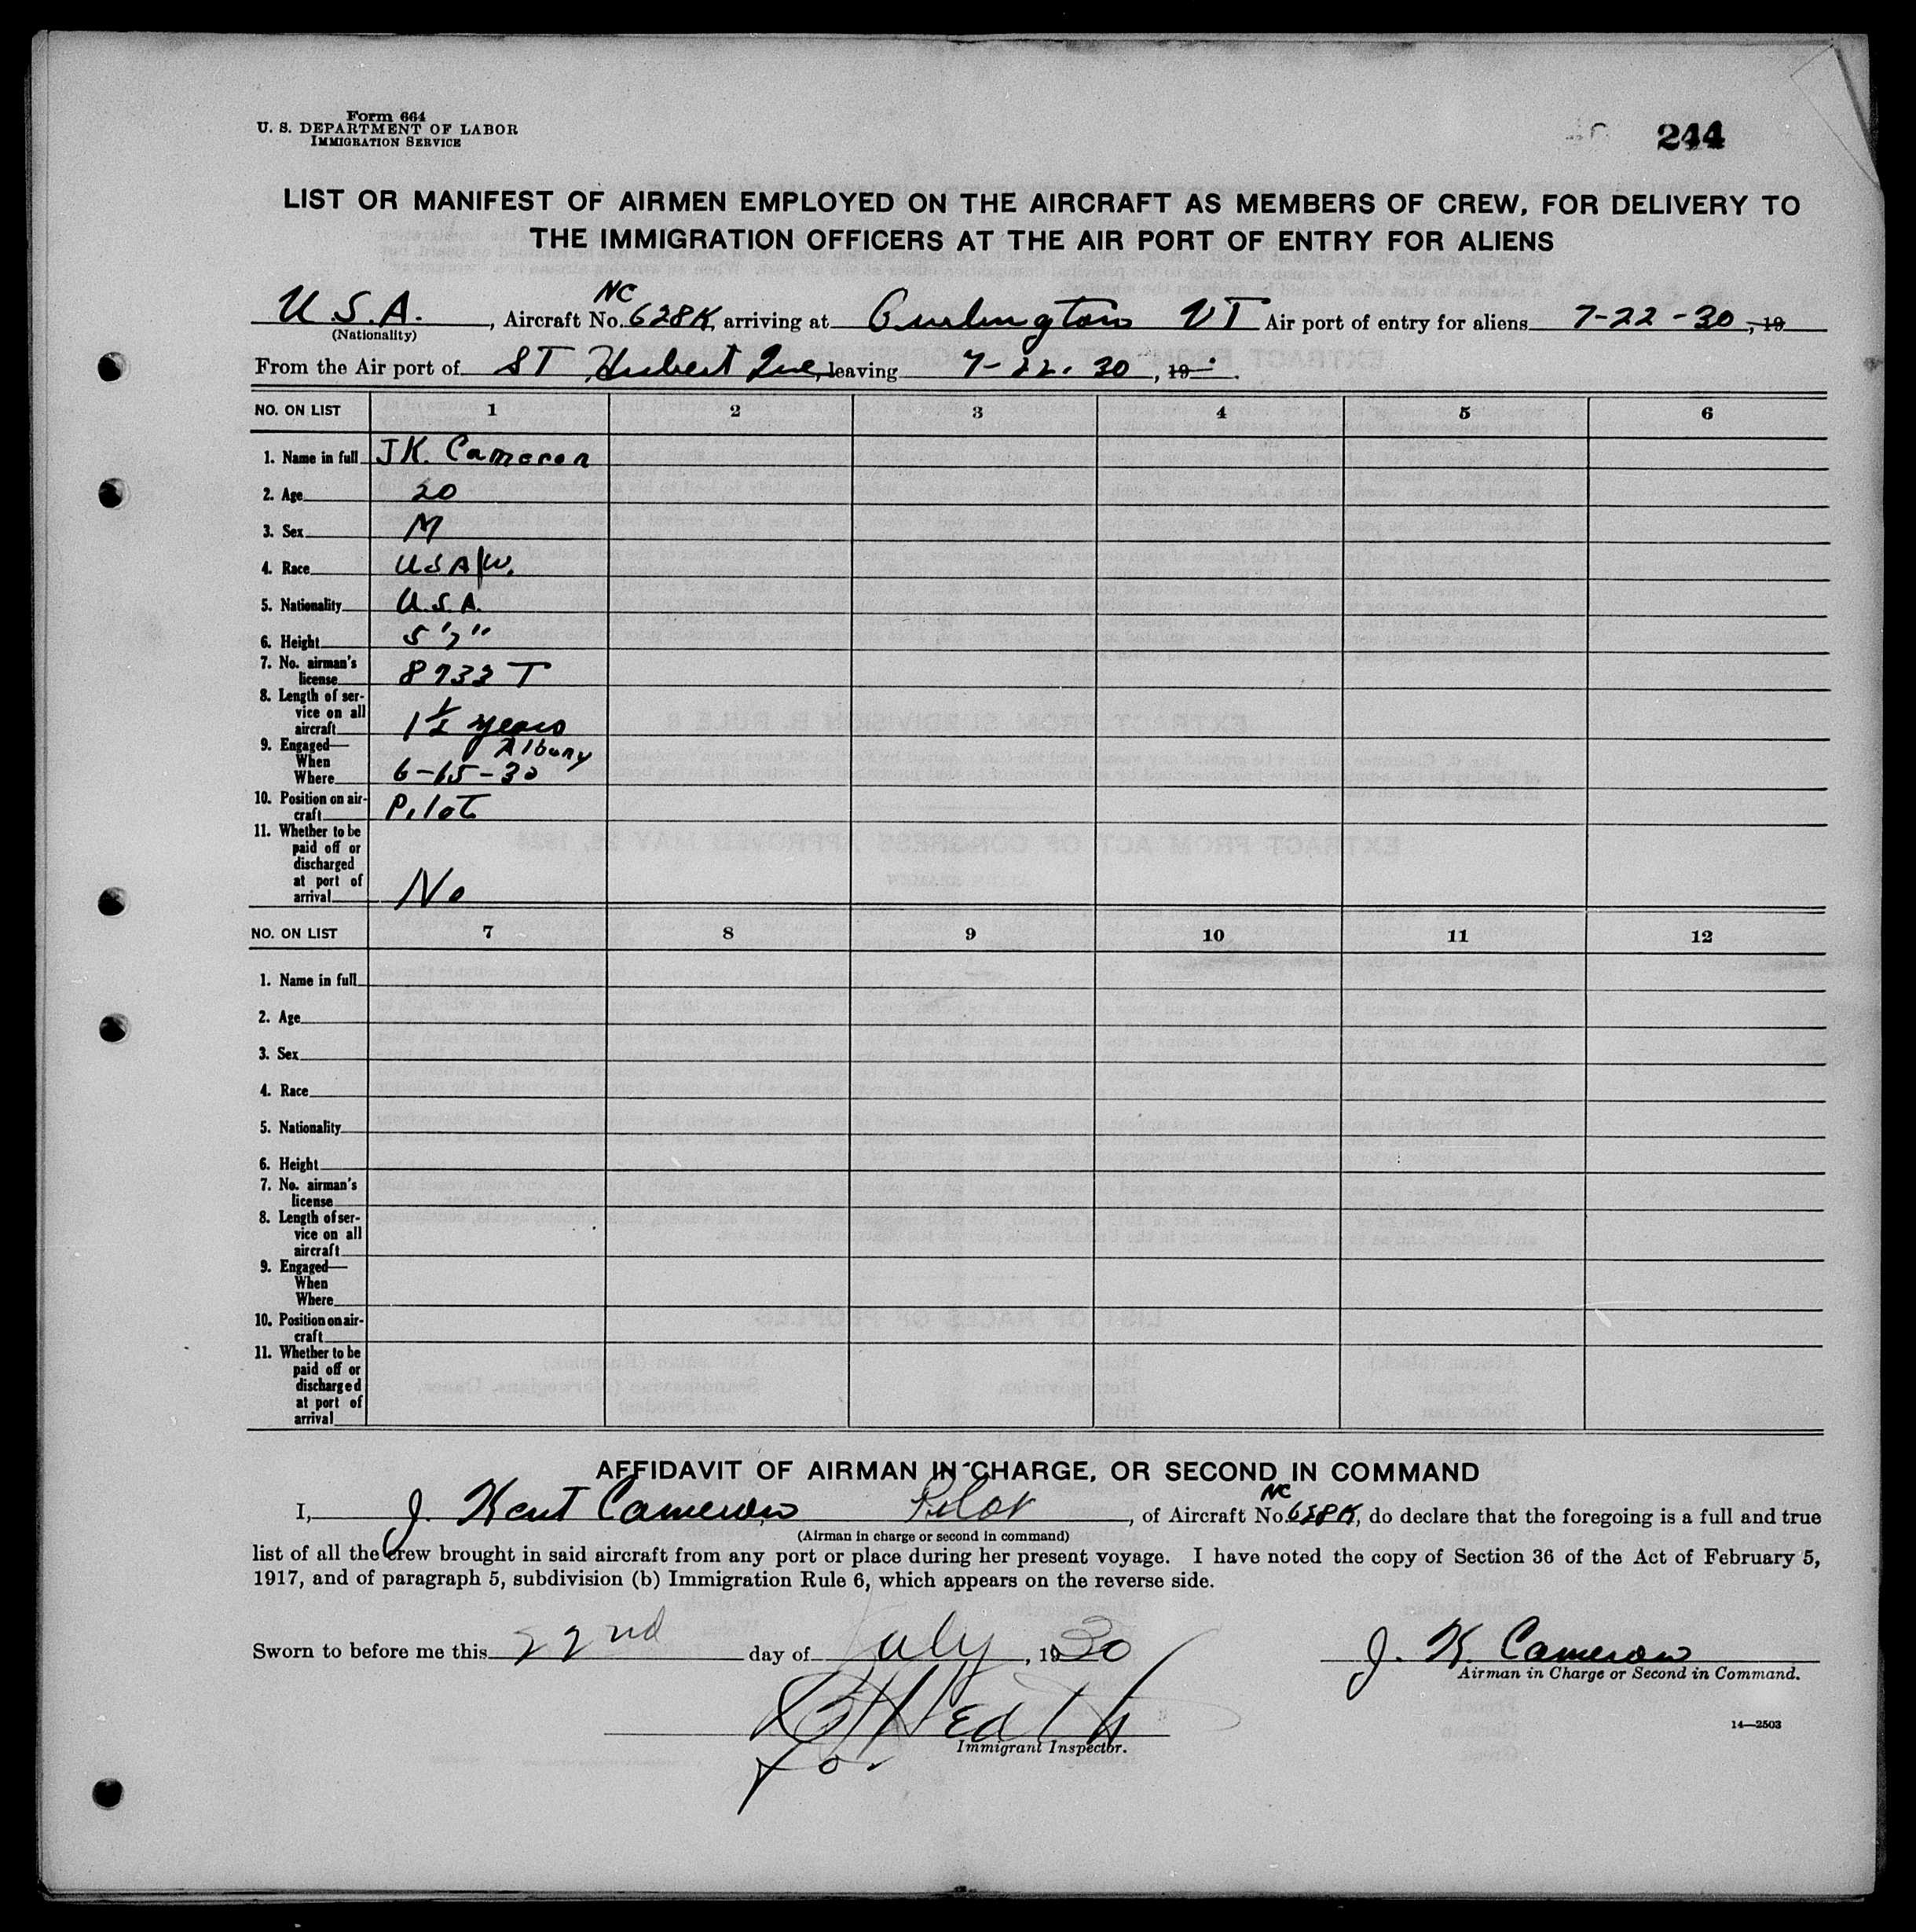 Form 664
U. S. DEPARTMENT OF LABOR
IMMIGRATION SERVICE
244
LIST OR MANIFEST OF AIRMEN EMPLOYED ON THE AIRCRAFT AS MEMBERS OF CREW, FOR DELIVERY TO
THE IMMIGRATION OFFICERS AT THE AIR PORT OF ENTRY FOR ALIENS
U.S.A., Aircraft No. NC 628K, arriving at Burlington VT Air port of entry for aliens 7-22-30, 19
(Nationality)
From the Air port of ST Hubert Que, leaving 7-22-30, 19
NO. ON LIST 1 2 3 4 5 6
1. Name in full J K. Cameron
2. Age 20
3. Sex M
4. Race USA/W.
5. Nationality U.S.A.
6. Height 5'7"
7. No. airman's
license 8733 T
8. Length of ser-
vice on all
aircraft 1½ years
9. Engaged—
When Albany
Where 6-15-30
10. Position on air-
craft Pilot
11. Whether to be
paid off or
discharged
at port of
arrival No
NO. ON LIST 7 8 9 10 11 12
1. Name in full
2. Age
3. Sex
4. Race
5. Nationality
6. Height
7. No. airman's
license
8. Length of ser-
vice on all
aircraft
9. Engaged—
When
Where
10. Position on air-
craft
11. Whether to be
paid off or
discharged
at port of
arrival
AFFIDAVIT OF AIRMAN IN CHARGE, OR SECOND IN COMMAND
I, J. Kent Cameron Pilot, of Aircraft No. NC 628K, do declare that the foregoing is a full and true
(Airman in charge or second in command)
list of all the crew brought in said aircraft from any port or place during her present voyage. I have noted the copy of Section 36 of the Act of February 5,
1917, and of paragraph 5, subdivision (b) Immigration Rule 6, which appears on the reverse side.
Sworn to before me this 22nd day of July, 1930
J. K. Cameron
Airman in Charge or Second in Command.
Heath
Immigrant Inspector.
14—2503